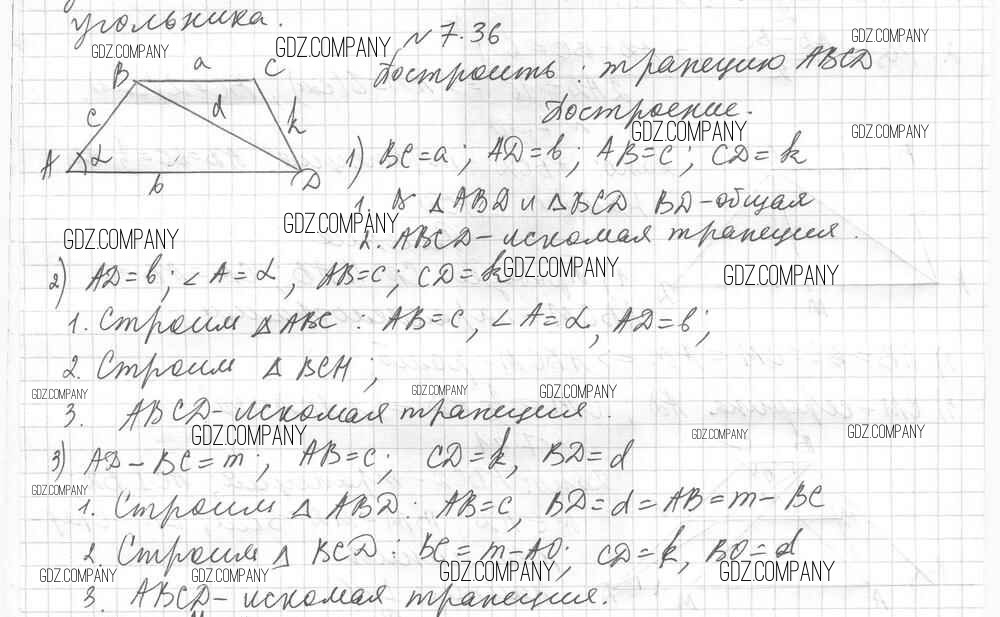 угольника.
GDZ.COMPANY
GDZ.COMPANY
№ 7.36
GDZ.COMPANY
B a C
Построить: трапецию ABCD
c d k
Построение.
GDZ.COMPANY
GDZ.COMPANY
A α b D
1) BC=a; AD=b; AB=c; CD=k
1. В △ABD и △BCD BD-общая
GDZ.COMPANY
GDZ.COMPANY
2. ABCD-искомая трапеция.
2) AD=b; ∠A=α, AB=c; CD=k
GDZ.COMPANY
GDZ.COMPANY
1. Строим △ABC: AB=c, ∠A=α, AD=b;
2. Строим △ BCH;
GDZ.COMPANY
GDZ.COMPANY
GDZ.COMPANY
3. ABCD-искомая трапеция.
GDZ.COMPANY
GDZ.COMPANY
GDZ.COMPANY
3) AD-BC=m; AB=c; CD=k, BD=d
GDZ.COMPANY
1. Строим △ABD: AB=c, BD=d=AB=m-BC
2. Строим △ BCD: BC=m-AD; CD=k, BD=d
GDZ.COMPANY
GDZ.COMPANY
GDZ.COMPANY
GDZ.COMPANY
3. ABCD-искомая трапеция.